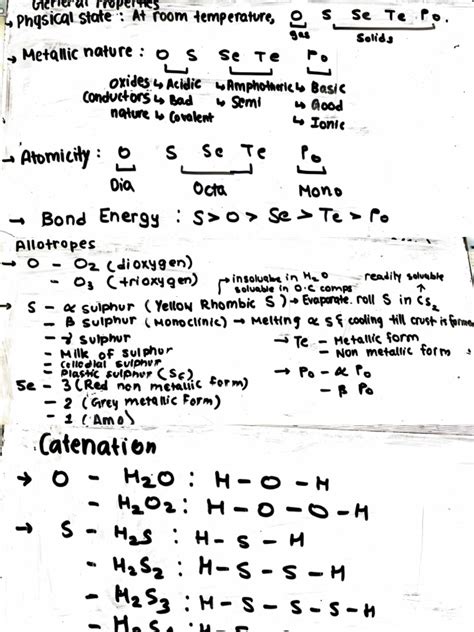 General Properties
→ Physical state : At room temperature, O S Se Te Po.
gas Solids
→ Metallic nature : O S Se Te Po
oxides ↳ Acidic ↳ Amphoteric ↳ Basic
conductors ↳ Bad ↳ Semi ↳ Good
nature ↳ Covalent ↳ Ionic
→ Atomicity : O S Se Te Po
Dia Octa Mono
→ Bond Energy : S > O > Se > Te > Po
Allotropes
→ O - O2 (dioxygen)
- O3 (trioxygen) → insoluable in H2O readily soluable
soluable in O.C comps ↑
→ S - α sulphur (Yellow Rhombic S) → Evaporate. roll S in CS2
- β Sulphur (Monoclinic) → Melting α S & cooling till crust is formed
- γ sulphur → Te - Metallic form
- Milk of sulphur - Non metallic form
- Colloidal sulphur
- Plastic sulphur → Po - α Po
Se - 3 (Red non metallic form) - β Po
- 2 (Grey metallic form)
- 1 (Amo)
Catenation
→ O - H2O : H - O - H
- H2O2 : H - O - O - H
→ S - H2S : H - S - H
- H2S2 : H - S - S - H
- H2S3 : H - S - S - S - H